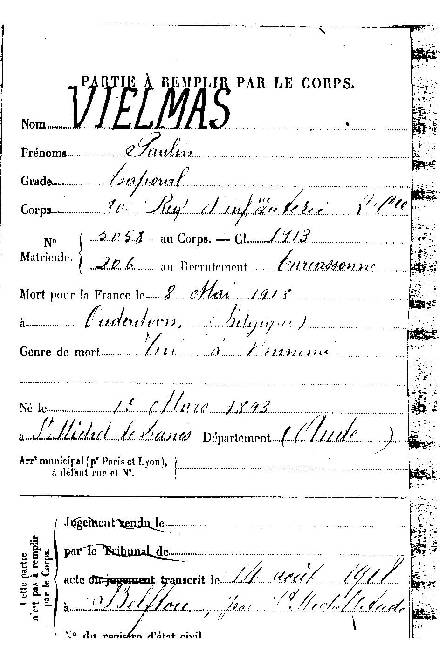 PARTIE À REMPLIR PAR LE CORPS.
Nom VIELMAS
Prénoms Paulin
Grade Caporal
Corps 20 Reg d'infanterie
Nº 5058 au Corps. — Cl. 1913
Matricule. 206 au Recrutement Carcassonne
Mort pour la France le 8 Mai 1915
à (Belgique)
Genre de mort Tué à l'ennemi
Né le 1r Mars 1893
à St Michel de Lanès Département (Aude)
Arrt municipal (pr Paris et Lyon),
à défaut rue et Nº.
Cette partie
n'est pas à remplir
par le Corps.
Jugement rendu le
par le Tribunal de
acte du jugement transcrit le 14 août 1918
à Belflou, par St Michel Aude
Nº du registre d'état civil